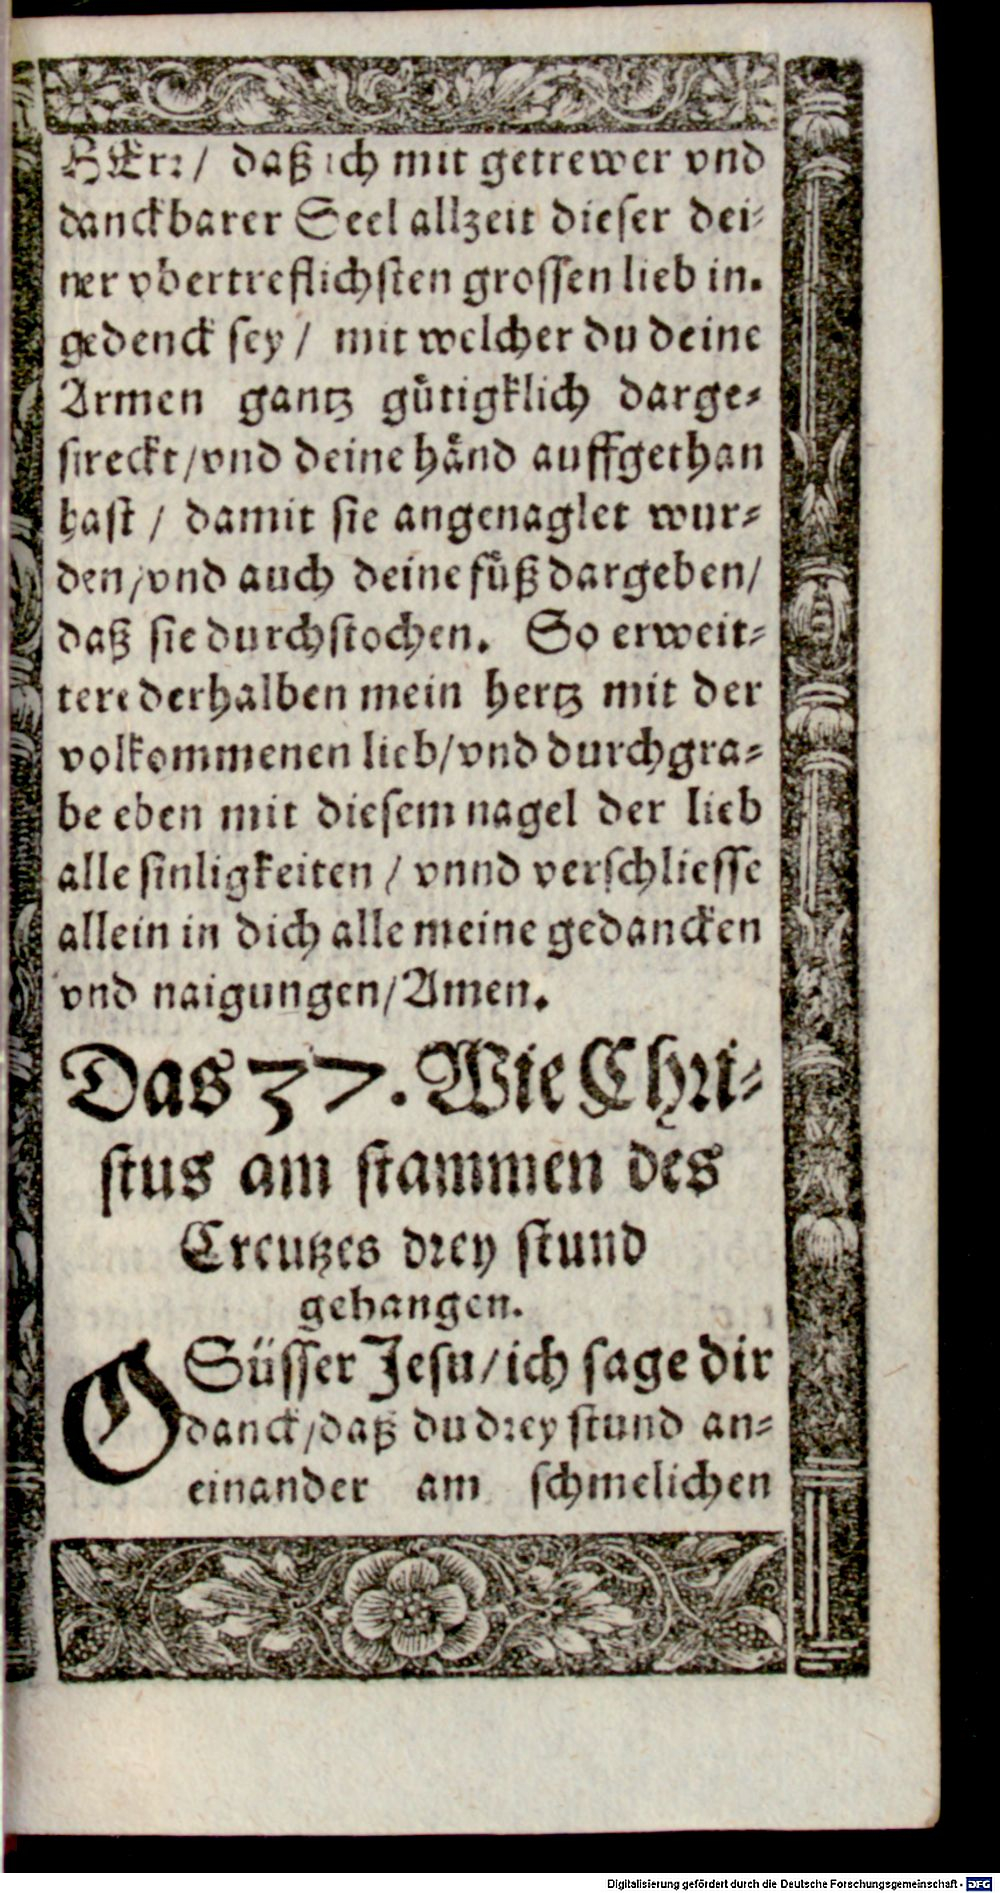 HErr/ daß ich mit getrewer vnd
danckbarer Seel allzeit dieser dei⸗
ner vbertreflichsten grossen lieb in.
gedenck sey/ mit welcher du deine
Armen gantz gütigklich darge⸗
streckt/vnd deine händ auffgethan
hast / damit sie angenaglet wur⸗
den/vnd auch deine füß dargeben/
daß sie durchstochen. So erweit⸗
tere derhalben mein hertz mit der
volkommenen lieb/vnd durchgra⸗
be eben mit diesem nagel der lieb
alle sinligkeiten / vnnd verschliesse
allein in dich alle meine gedancken
vnd naigungen/Amen.
Das 37. Wie Chri⸗
stus am stammen des
Creutzes drey stund
gehangen.
O Süsser Jesu/ich sage dir
danck/daß du drey stund an⸗
einander am schmelichen
Digitalisierung gefördert durch die Deutsche Forschungsgemeinschaft - DFG